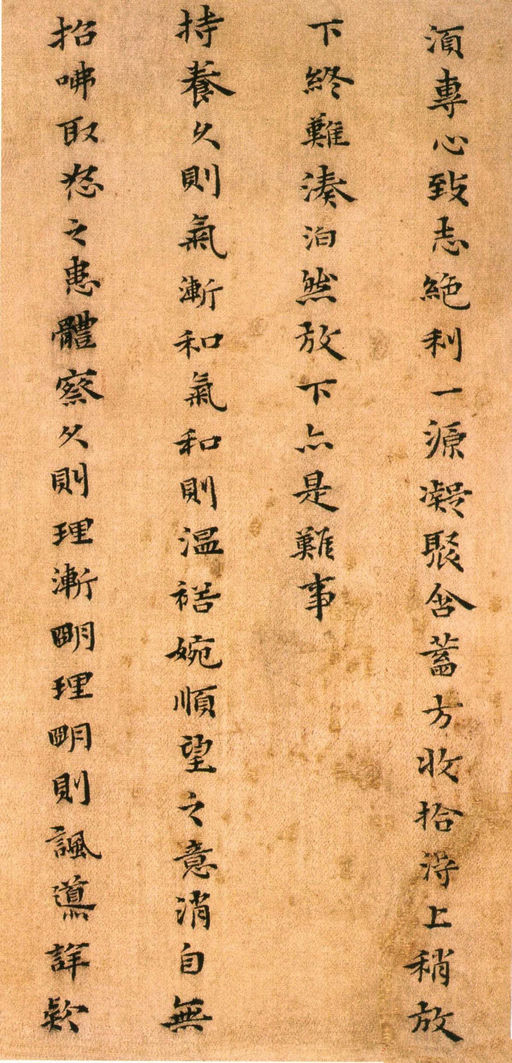 須專心致志絶利一源凝聚含蓄方收拾得上稍放
下終難湊泊然放下亦是難事
持養久則氣漸和氣和則温裕婉順望之意消自無
招咈取怒之患體察久則理漸明理明則諷導詳款